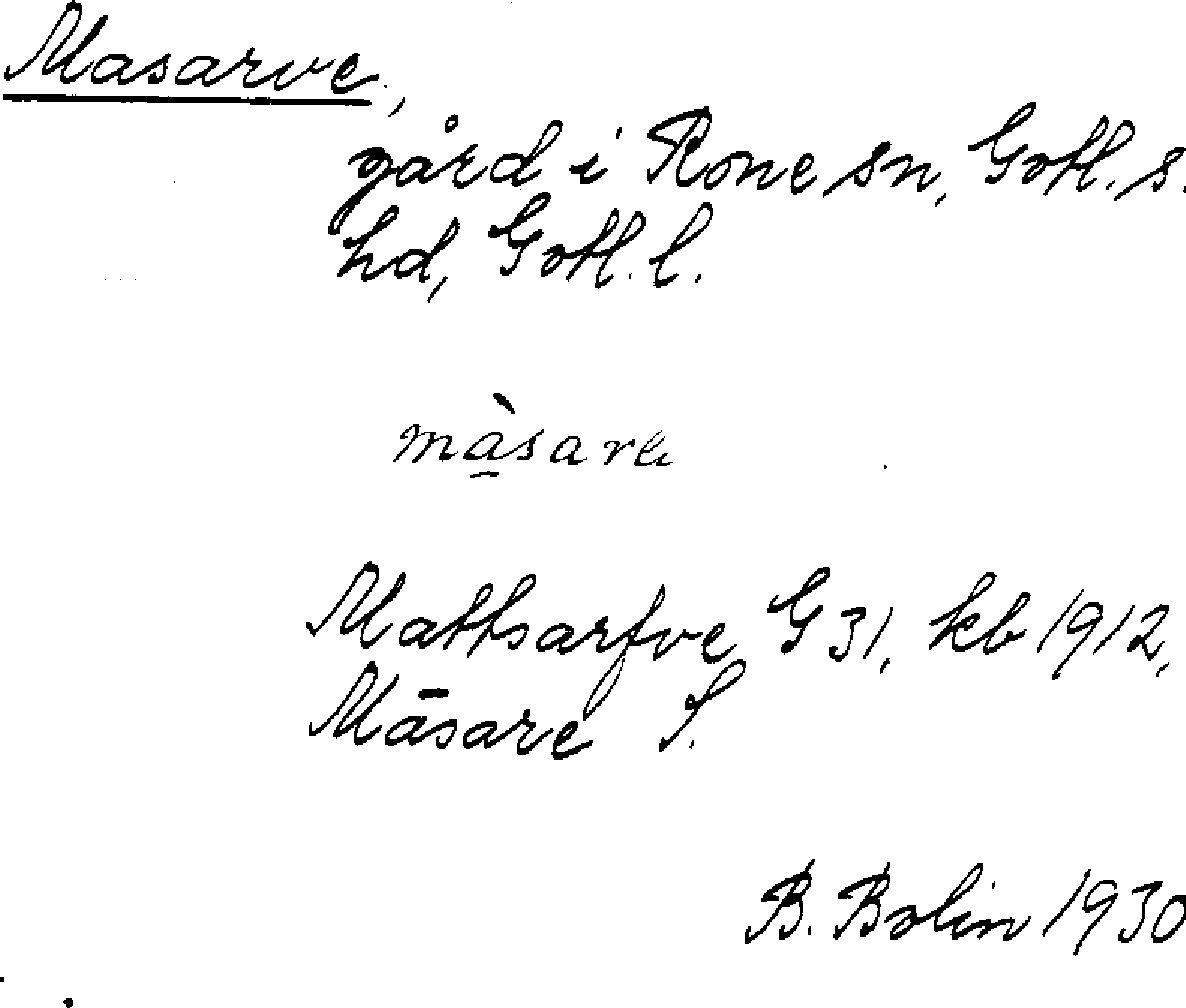 Masarve,
gård i Rone sn, Gotl. s.
hd, Gotl. l.
mà̱sare
Mattsarfve G 31, kb 1912,
Māsare S.
B. Bolin 1930